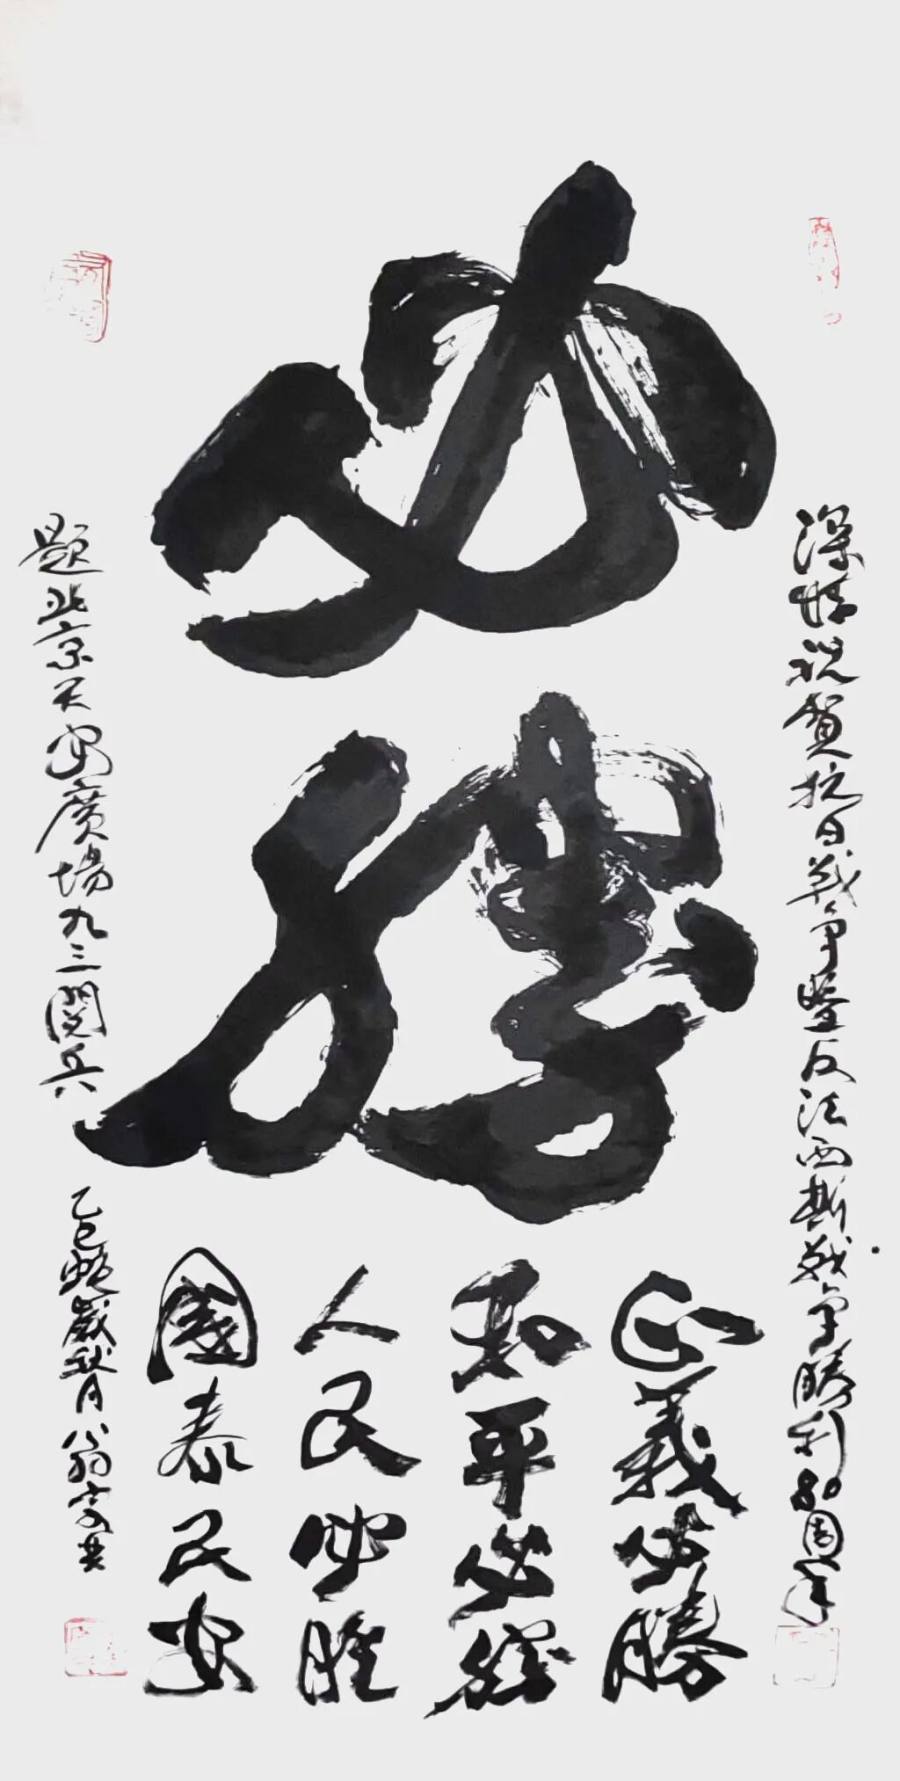 深情祝賀抗日战争暨反法西斯战争勝利80周年
必勝
正義必勝
和平必勝
人民必胜
國泰民安
題北京天安廣場九三閱兵
乙巳蛇歲秋月八翁